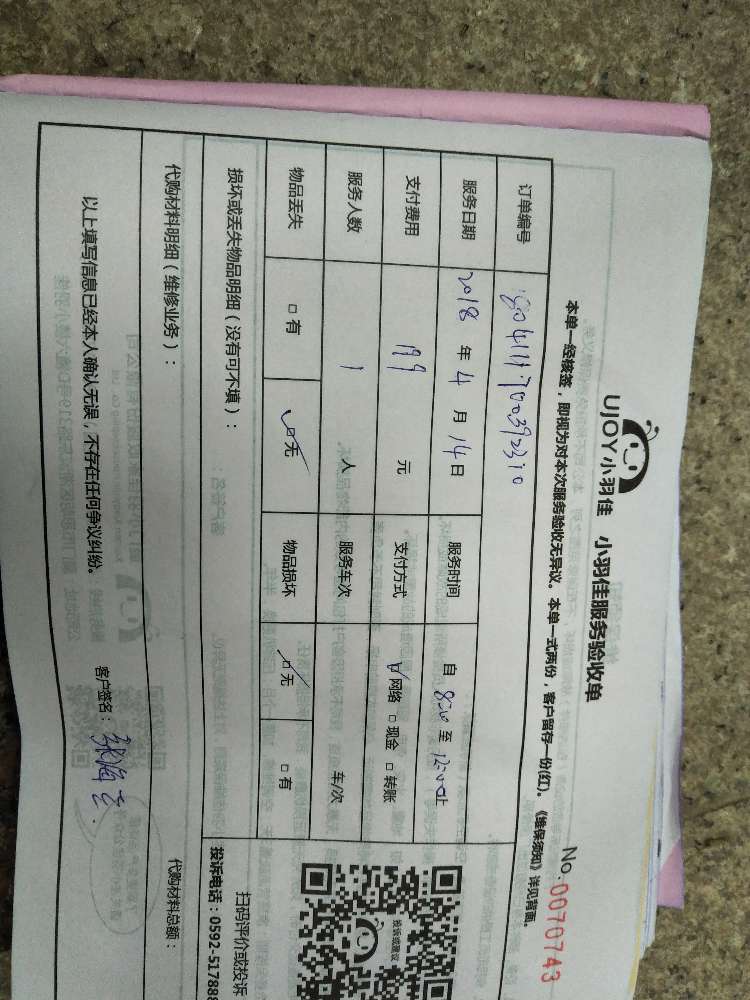 UJOY小羽佳 小羽佳服务验收单
No.0070743
本单一经核签，即视为对本次服务验收无异议。本单一式两份，客户留存一份(红)。《维保须知》详见背面。
订单编号
服务日期 2018 年 4 月 14 日 服务时间 自 8:00 至 12:00止
支付费用 199 元 支付方式 ☑网络 □现金 □转账
服务人数 1 人 服务车次 车/次
物品丢失 □有 ☑无 物品损坏 ☑无 □有
损坏或丢失物品明细（没有可不填）：
代购材料明细（维修业务）： 代购材料总额：
以上填写信息已经本人确认无误，不存在任何争议纠纷。 客户签名：
投诉或建议
扫码评价或投诉
投诉电话：0592-517888